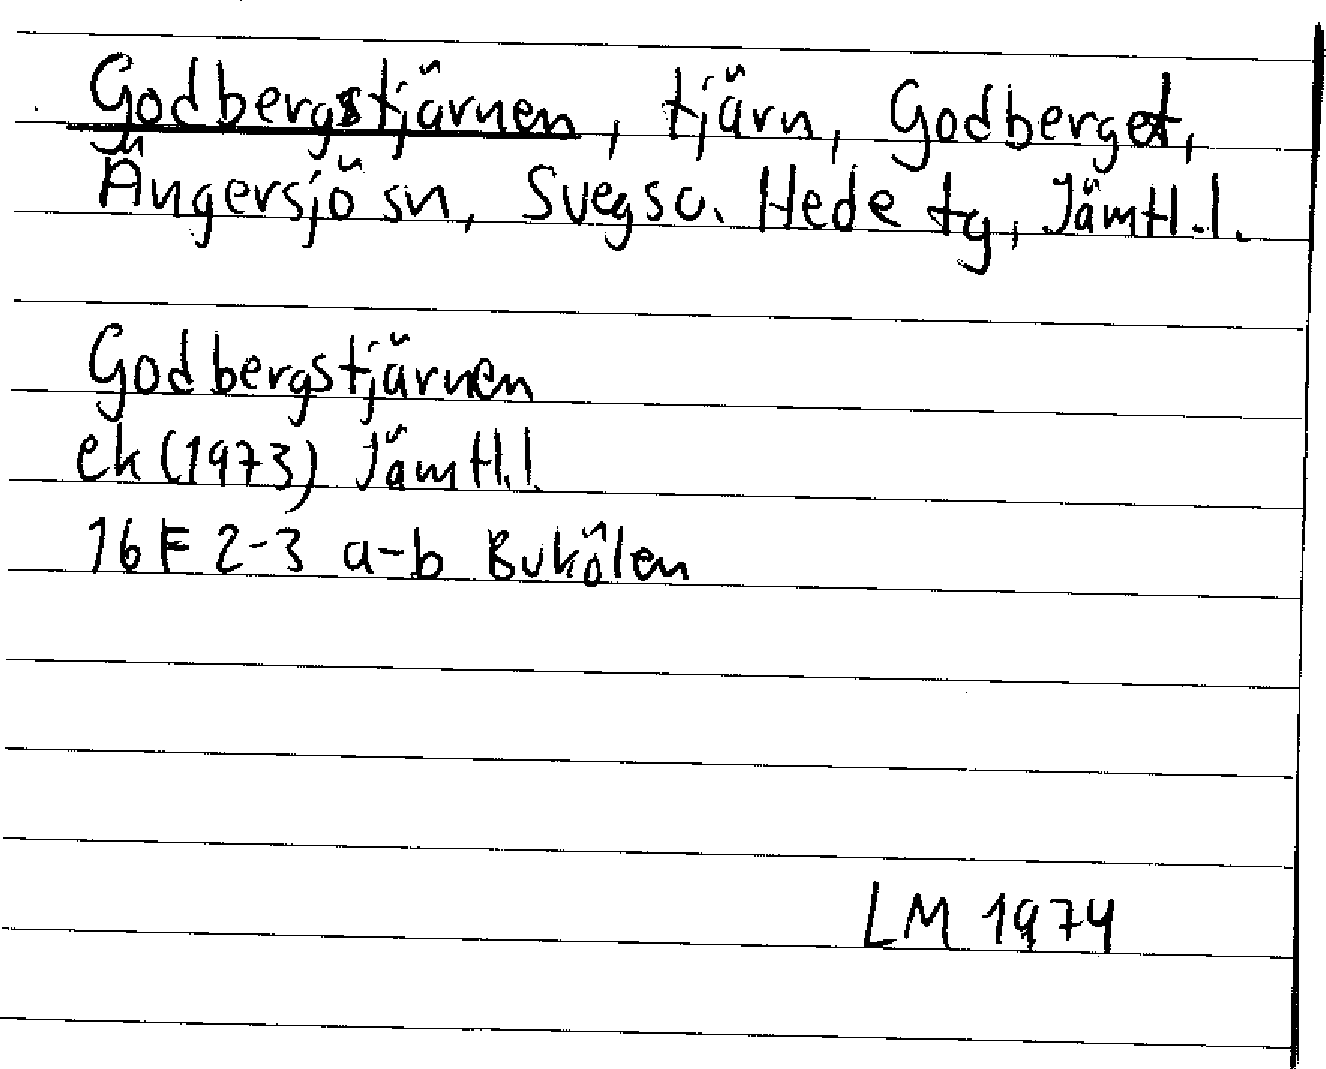 Godbergstjärnen, tjärn, Godberget,
Ängersjö sn, Svegs o. Hede tg, Jämtl.l.
Godbergstjärnen
ek (1973) Jämtl.l
16 F 2-3 a-b Bukölen
LM 1974